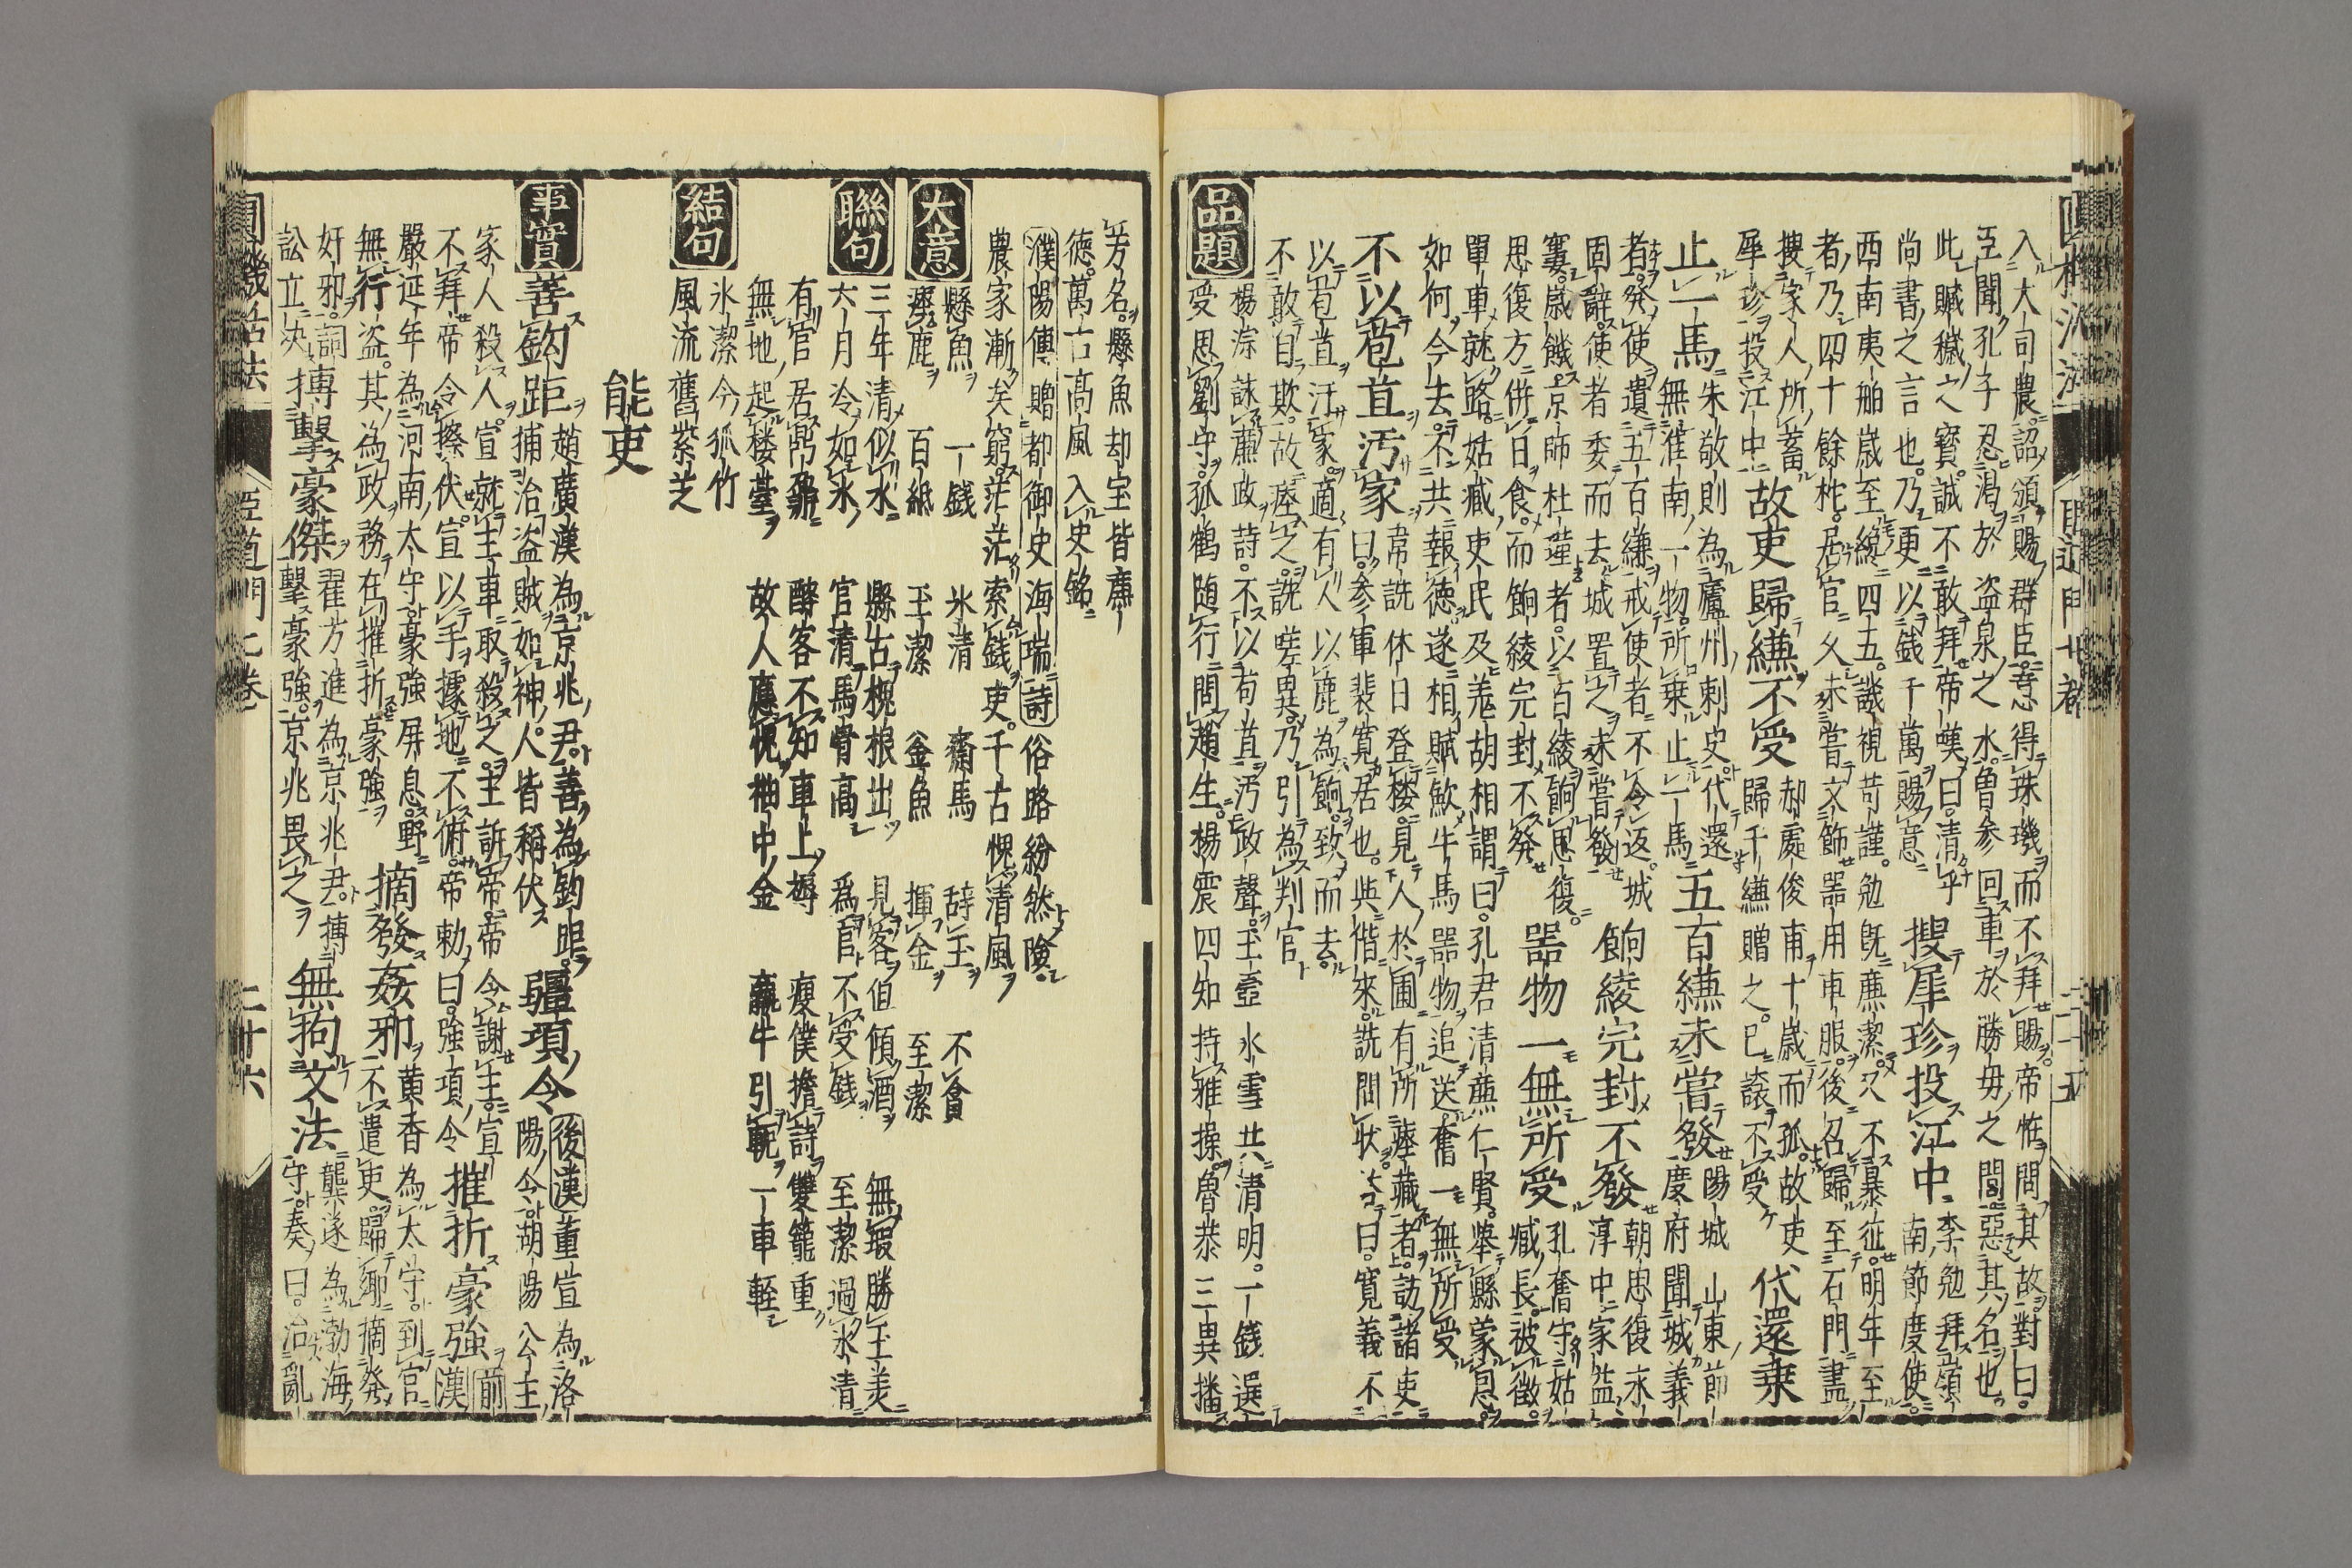 入大司農詔頒賜群臣意得珠璣而不拜賜帝恠問其故對曰
臣聞孔子忍渇於盗泉之水曽参回車於勝毋之閭惡其名也
此贓穢之寳誠不敢拜帝嘆曰清乎
尚書之言也乃更以錢千萬賜意
捜犀珍投江中
李勉拜嶺
南節度使
西南夷舶歳至纔四五譏視苛謹勉既㢘潔又不暴征明年至
者乃四十餘柁居官久未嘗文飾噐用車服後召歸至石門盡
捜家人所蓄
犀珍投江中
故吏歸縑不受
郝處俊甫十歳而孤故吏
歸千縑贈之已譲不受
代還乗
止一馬
朱敬則為廬州刺史代還
無淮南一物所乗止一馬
五百縑未嘗發
陽城山東節
度府聞城義
者発使遺五百縑戒使者不令返城
固辭使者委而去城置之未嘗發
餉綾完封不發
朝忠復永
淳中家益
寠歳饑京師杜瑾者以百綾餉思復
思復方併日食而餉綾完封不發
噐物一無所受
孔奮守姑
臧長被徴
單車就路姑臧吏民及羗胡相謂曰孔君清㢘仁賢挙縣蒙恩
如何今去不共報徳遂相賦歛牛馬噐物追送奮一無所受
不以苞苴汚家
韋詵休日登楼見人於圃有所瘞藏者訪諸吏
曰参軍裴寛居也與偕來詵問状荅曰寛義不
以苞苴汙家適有人以鹿為餉致而去
不敢自欺故瘞之詵嗟異乃引為判官
品題
楊淙詠㢘政詩不以苟苴汚政聲玉壺氷雪共清明一錢選
受思劉守孤鶴随行間趙生楊震四知持雅操魯恭三異播
芳名懸魚却宝皆㢘
徳萬古高風入史銘
濮陽傳贈都御史海瑞詩俗路紛然險
農家漸矣窮茫茫索錢吏千古愧清風
大意
懸魚　一錢　氷清　䔥馬　辞玉　不貪
瘞鹿　百紙　玉潔　釜魚　揮金　至潔
聯句
三年清似水　縣古槐根出　見客但傾酒　無瑕勝玉美
六月冷如氷　官清馬骨高　為官不受錢　至潔過氷清
有官居鼎鼐　醉客不知車上褥　痩僕擔詩雙籠重
無地起楼臺　故人應愧袖中金　羸牛引輗一車軽
結句
氷潔今孤竹
風流舊紫芝
能吏
事實
善鈎距
趙廣漢為京兆尹善為鈎距
捕治盗賊如神人皆稱伏
彊項令
後漢董宣為洛
陽令胡陽公主
家人殺人宣就主車取殺之主訴帝帝令謝主宣
不拜帝令擦伏宣以手據地不俯帝勅曰強項令
摧折豪強
前
漢
嚴延年為河南太守豪強屏息野
無行盗其為政務在摧折豪強
摘發姦邪
黄香為太守到官
不遣吏歸郷摘発
奸邪詞
訟立决
摶擊豪傑
翟方進為京兆尹摶
擊豪強京兆畏之
無拘文法
龔遂為渤海
守奏曰治亂